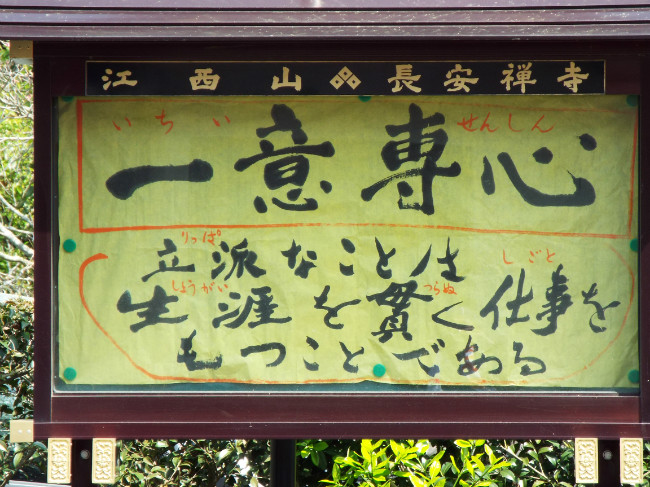 江西山 長安禅寺
いちい せんしん
一意専心
りっぱ
立派なことは
しょうがい つらぬ しごと
生涯を貫く仕事を
もつことである